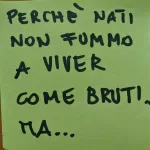 PERCHÈ NATI
NON FUMMO
A VIVER
COME BRUTI.
MA...